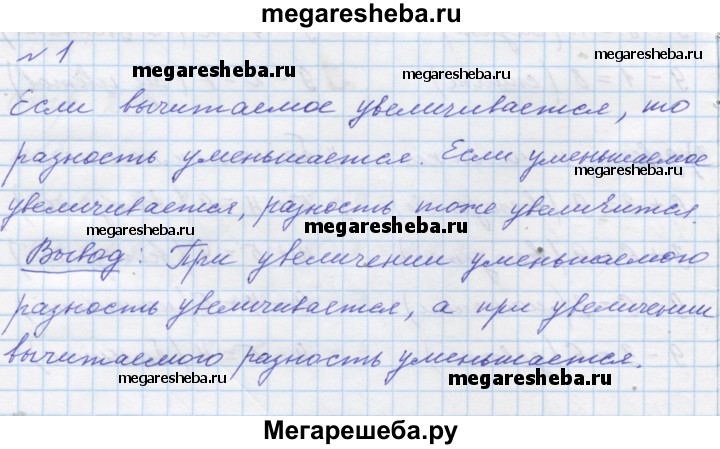 megaresheba.ru
№ 1
megaresheba.ru
megaresheba.ru
Если вычитаемое увеличивается, то
разность уменьшается. Если уменьшаемое
megaresheba.ru
увеличивается, разность тоже увеличится.
megaresheba.ru
Вывод: При увеличении уменьшаемого
разность увеличивается, а при увеличении
вычитаемого разность уменьшается.
megaresheba.ru
megaresheba.ru
Мегарешеба.ру